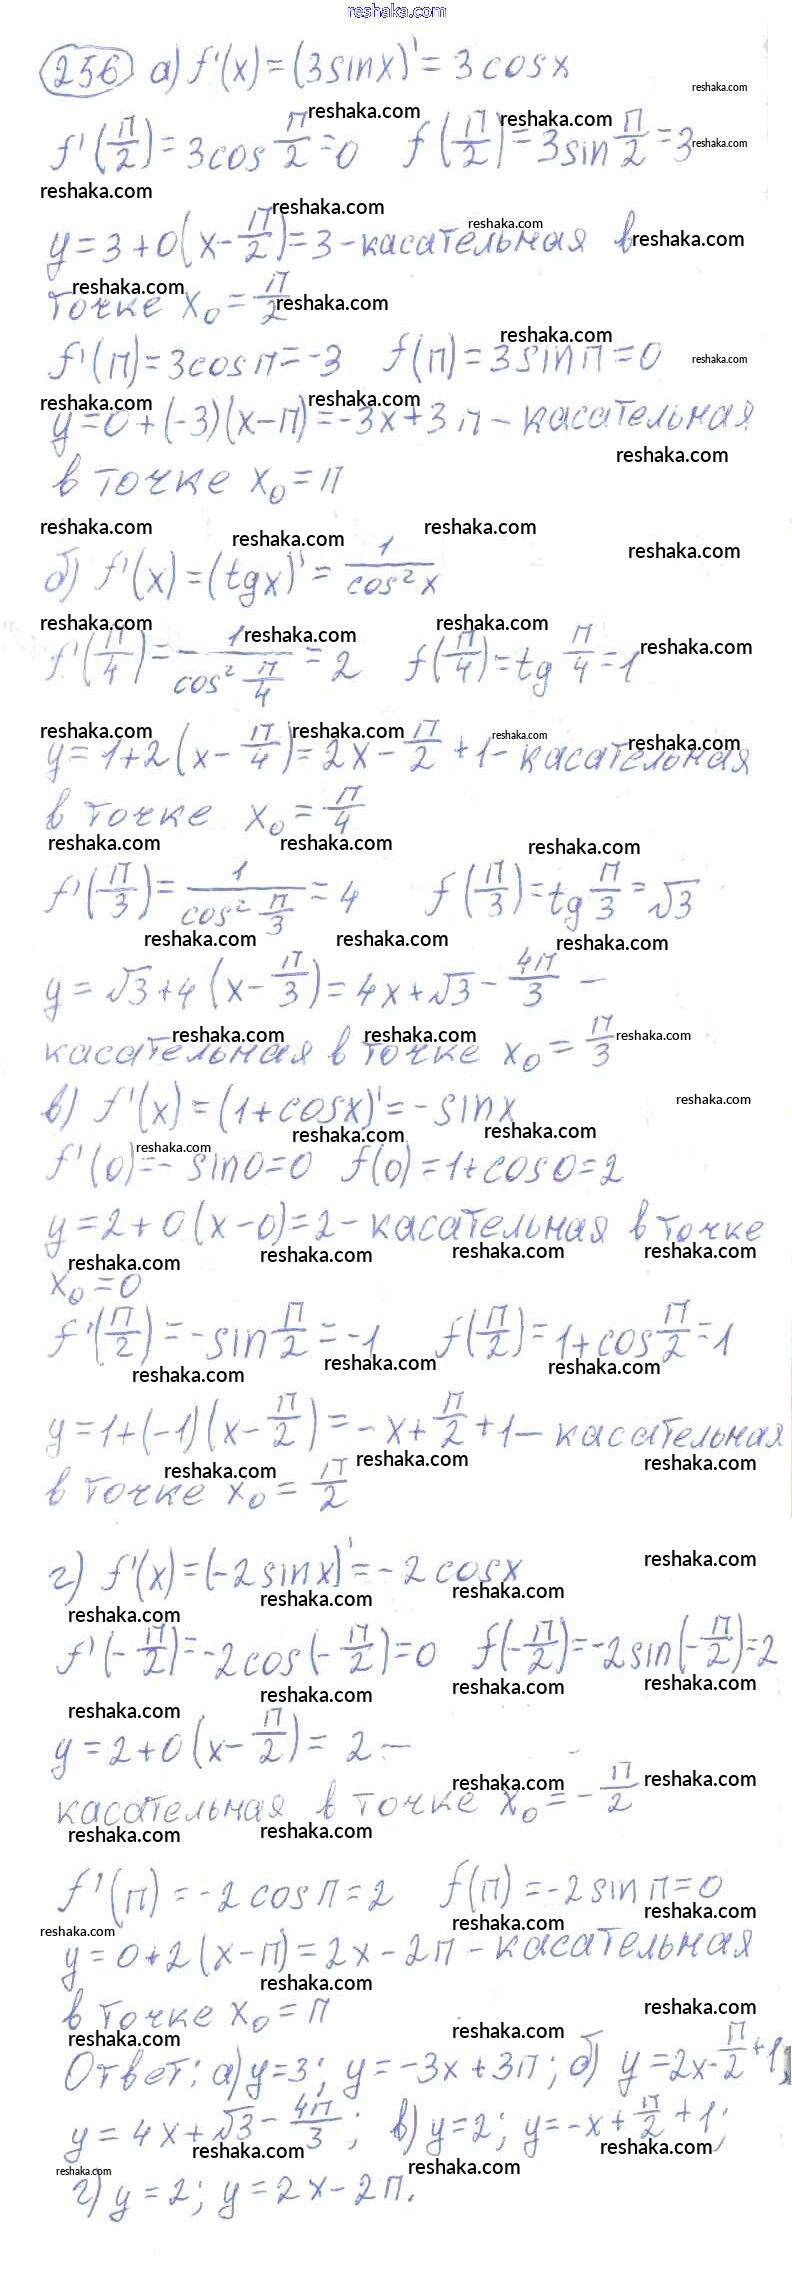 reshaka.com
256 а) f'(x) = (3sinx)' = 3cosx
f'(π/2) = 3cos π/2 = 0 f(π/2) = 3sin π/2 = 3
y = 3 + 0(x - π/2) = 3 - касательная в
точке x₀ = π/2
f'(π) = 3cosπ = -3 f(π) = 3sinπ = 0
y = 0 + (-3)(x - π) = -3x + 3π - касательная
в точке x₀ = π
б) f'(x) = (tgx)' = 1/cos²x
f'(π/4) = 1/cos² π/4 = 2 f(π/4) = tg π/4 = 1
y = 1 + 2(x - π/4) = 2x - π/2 + 1 - касательная
в точке x₀ = π/4
f'(π/3) = 1/cos² π/3 = 4 f(π/3) = tg π/3 = √3
y = √3 + 4(x - π/3) = 4x + √3 - 4π/3 -
касательная в точке x₀ = π/3
в) f'(x) = (1 + cosx)' = -sinx
f'(0) = -sin0 = 0 f(0) = 1 + cos0 = 2
y = 2 + 0(x - 0) = 2 - касательная в точке
x₀ = 0
f'(π/2) = -sin π/2 = -1 f(π/2) = 1 + cos π/2 = 1
y = 1 + (-1)(x - π/2) = -x + π/2 + 1 - касательная
в точке x₀ = π/2
г) f'(x) = (-2sinx)' = -2cosx
f'(-π/2) = -2cos(-π/2) = 0 f(-π/2) = -2sin(-π/2) = 2
y = 2 + 0(x - π/2) = 2 -
касательная в точке x₀ = -π/2
f'(π) = -2cosπ = 2 f(π) = -2sinπ = 0
y = 0 + 2(x - π) = 2x - 2π - касательная
в точке x₀ = π
Ответ: а) y = 3; y = -3x + 3π; б) y = 2x - π/2 + 1;
y = 4x + √3 - 4π/3; в) y = 2; y = -x + π/2 + 1;
г) y = 2; y = 2x - 2π.